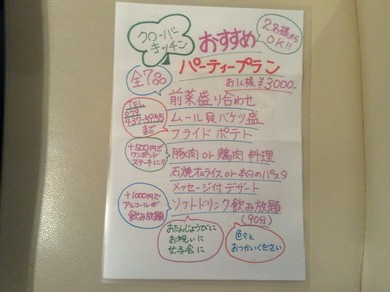 クローバー
キッチン
おすすめ
2名様から
OK!!
パーティープラン
全7品
お1人様 ¥3000-
前菜盛り合わせ
ムール貝バケツ盛
フライドポテト
TEL
079
437-4955
まで
+500円で
ワンポンド
ステーキに!!
豚肉or鶏肉料理
石焼オムライスor本日のパスタ
メッセージ付デザート
+1000円で
アルコールが
飲み放題
ソフトドリンク飲み放題
(90分)
おたんじょうびに
お祝いに
女子会に
色々と
おつかいください